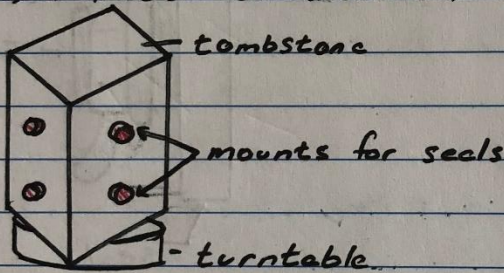 tombstone
mounts for seals
turntable